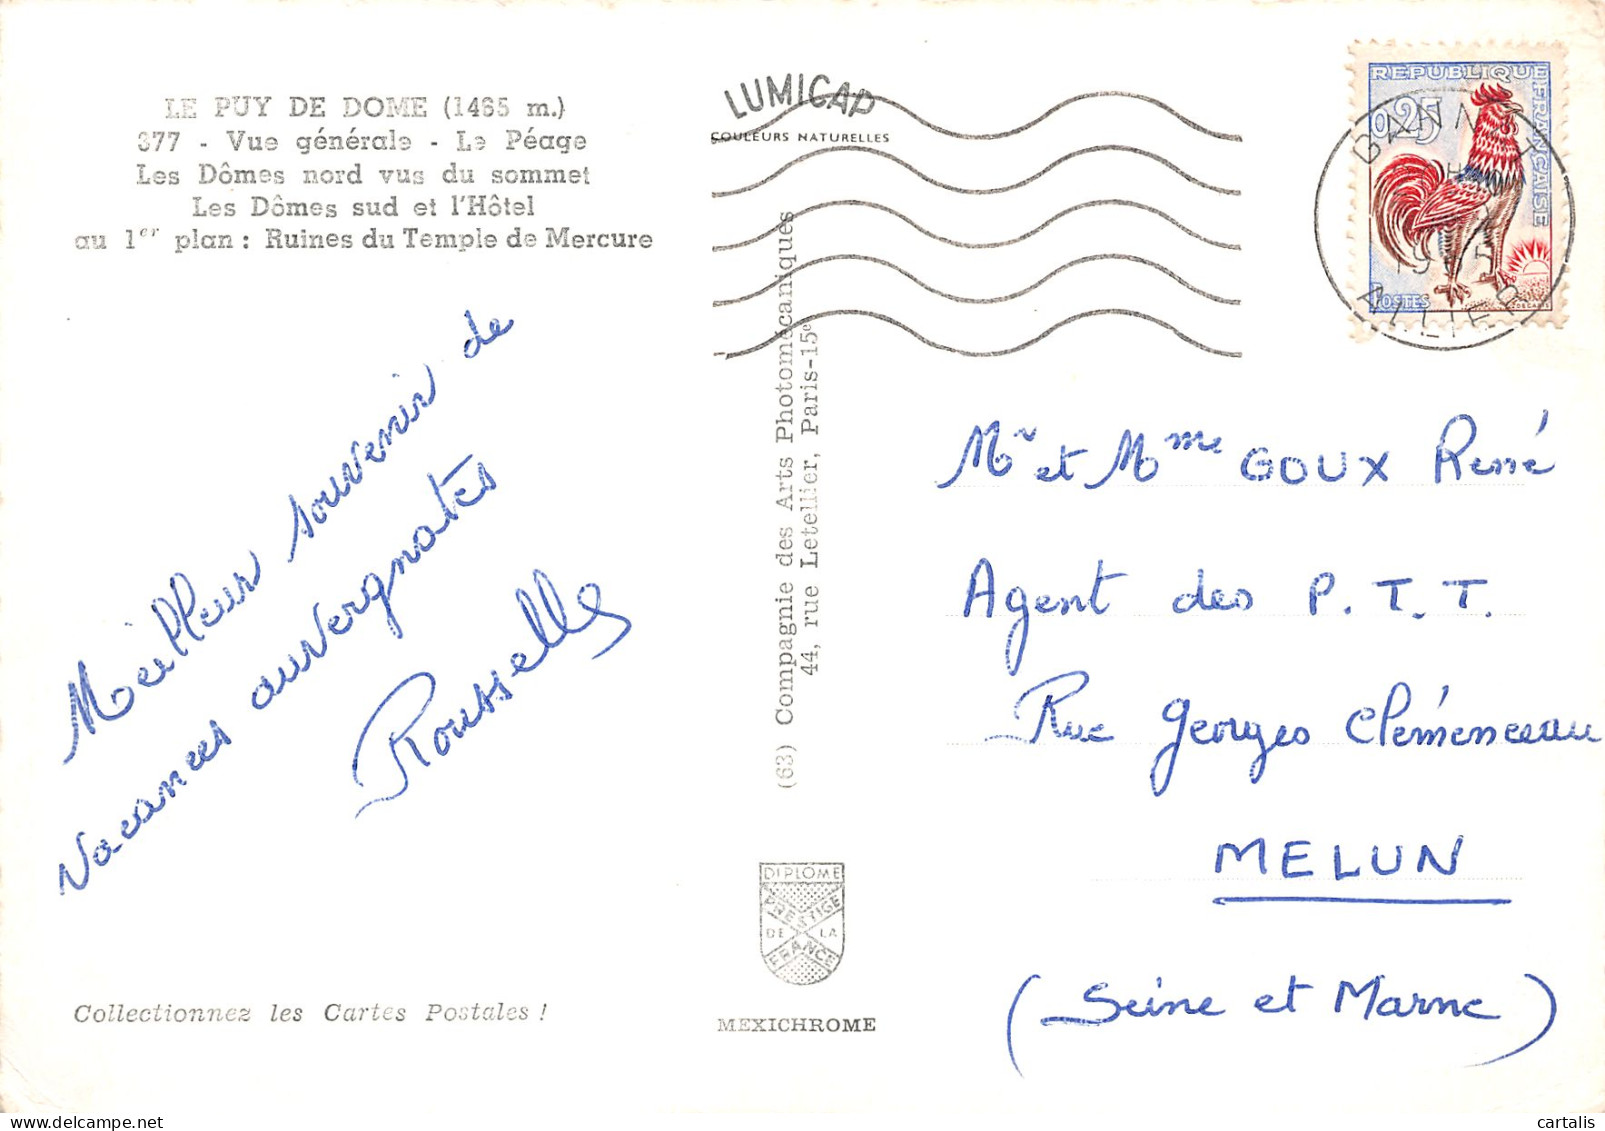 LE PUY DE DOME (1465 m.)
377 - Vue générale - Le Péage
Les Dômes nord vus du sommet
Les Dômes sud et l'Hôtel
au 1er plan : Ruines du Temple de Mercure
LUMICAP
COULEURS NATURELLES
REPUBLIQUE FRANÇAISE
0,25
POSTES
GANNAT
1965
ALLIER
Meilleur souvenir de
vacances auvergnates
Rousselle
(63) Compagnie des Arts Photomécaniques
44, rue Letellier, Paris-15e
Mr et Mme GOUX René
Agent des P. T. T.
Rue Georges Clémenceau
MELUN
(Seine et Marne)
DIPLOME
PRESTIGE
DE LA
FRANCE
MEXICHROME
Collectionnez les Cartes Postales !
cartalis